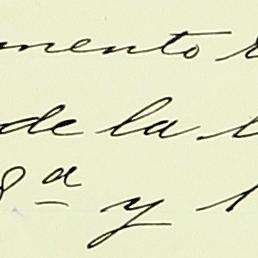 mento
de la
8ª y